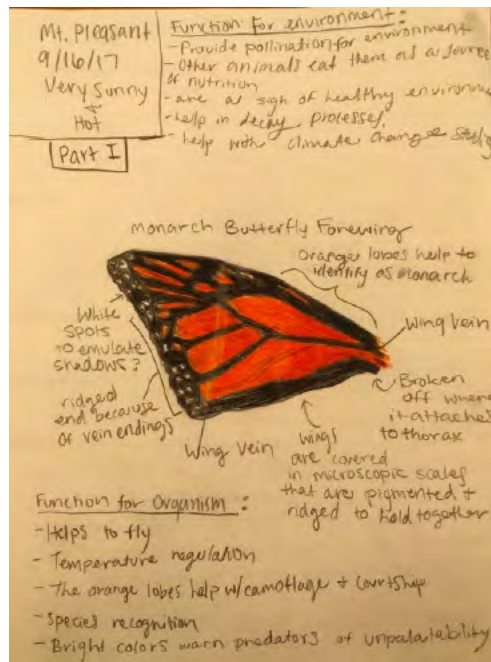 Mt. Pleasant
9/16/17
Very Sunny
+
Hot
Part I
Function for environment:
-Provide pollination for environment
-Other animals eat them as a source
of nutrition
-are a sign of healthy environme
-help in decay processes,
-help with climate change
Monarch Butterfly Forewing
Orange lobes help to
identify as monarch
White
spots
to emulate
shadows?
ridged
end because
of vein endings
Wing vein
Broken
off where
it attaches
to thorax
Wing Vein
wings
are covered
in microscopic scales
that are pigmented +
ridged to hold together
Function for Organism:
-Helps to fly
-Temperature regulation
-The orange lobes help w/camoflage + courtship
-Species recognition
-Bright colors warn predators of unpalatability